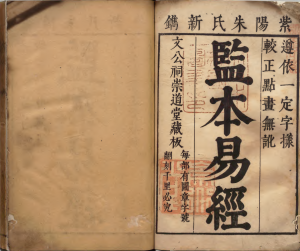 紫陽朱氏新鐫
遵依一定字樣
較正點畫無訛
監本易經
文公祠崇道堂藏板
每部有圖章字號
翻刻千里必究